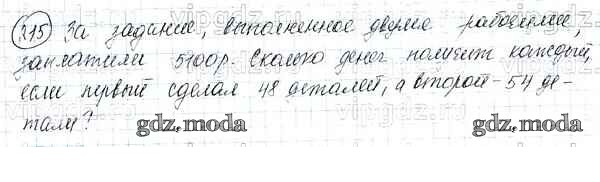 315 За задание, выполненное двумя рабочими,
заплатили 5100р. Сколько денег получит каждый,
если первый сделал 48 деталей, а второй - 54 де-
тали?
gdz.moda
gdz.moda